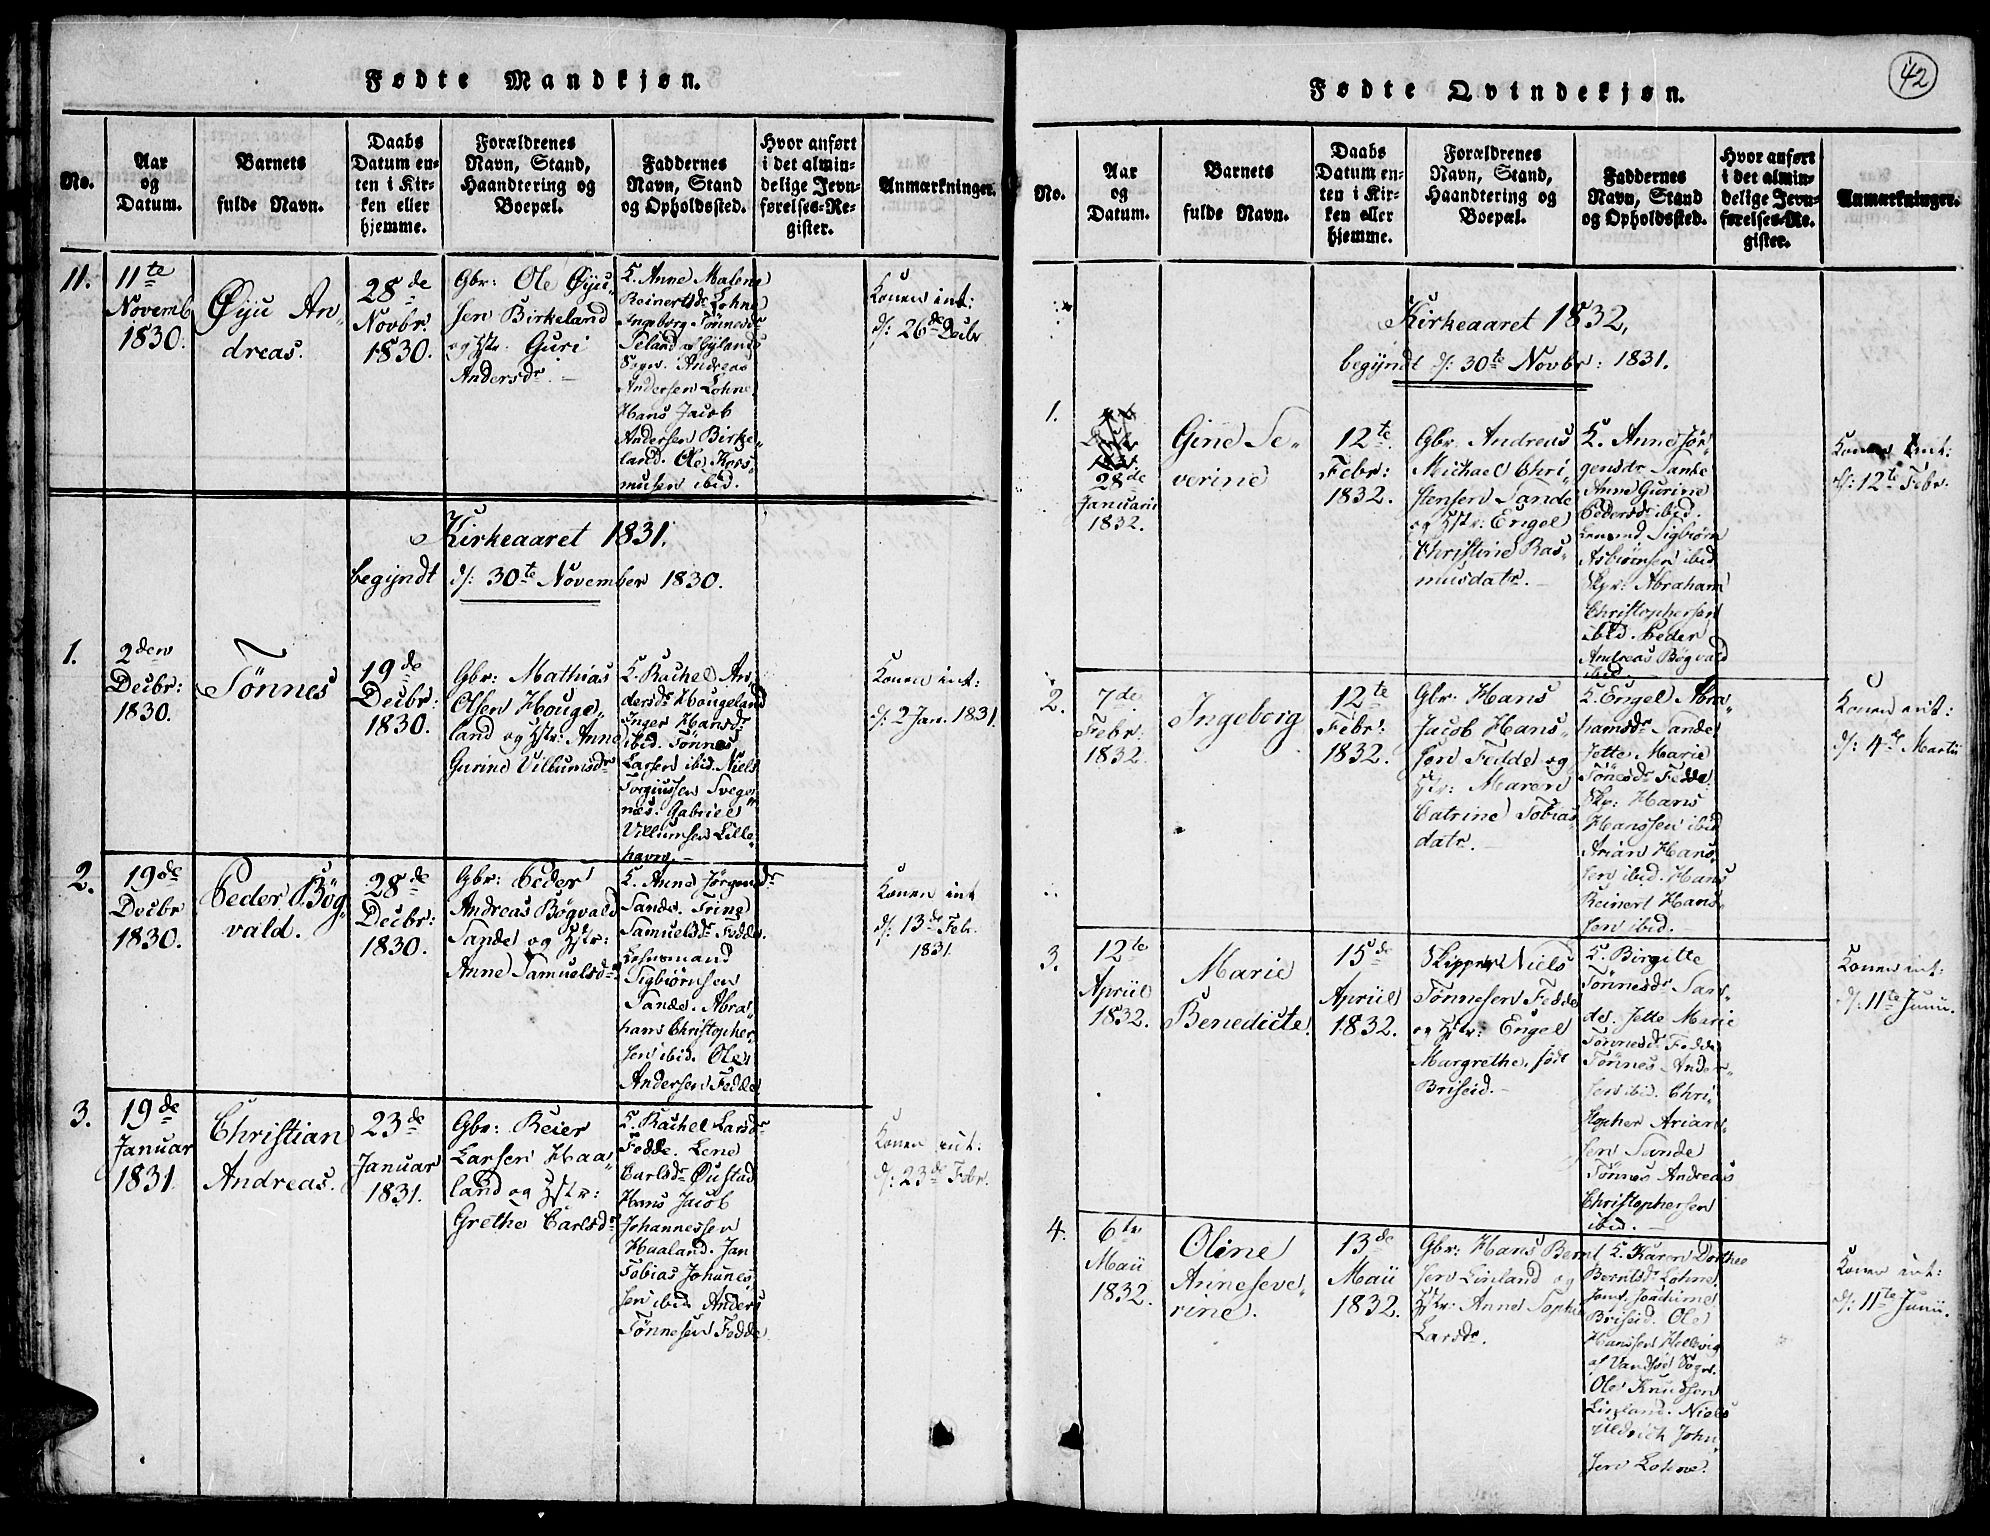 Fødte Mandkjøn.
No.
Aar
og
Datum.
Barnets
fulde Navn.
Daabs
Datum en-
ten i Kir-
ken eller
hjemme.
Forældrenes
Navn, Stand,
Haandtering og
Boepæl.
Faddernes
Navn, Stand
og Opholdssted.
Hvor anført
i det almin-
delige Jevn-
førelses-Re-
gister.
Anmærkninger.
11.
11te
Novemb
1830.
Øyu An-
dreas.
28de
Novbr.
1830.
Gbr: Ole Øyu-
sen Birkeland
og Hstr. Guri
Andersdr.
K. Anne Malene
Reinertsdr Lohne
Ingeborg Tönnesdr
Seland af Gylands
Sogn. Andreas
Andersen Lohne
Hans Jacob
Andersen Birke-
land. Ole Ras-
musen ibid.
Konen int:
d/: 26de Decbr
Kirkeaaret 1831.
begyndt d/: 30te November 1830.
1.
2den
Decbr:
1830.
Tönnes
19de
Decbr:
1830.
Gbr: Mathias
Olsen Houge-
land og Hstr: Anne
Gurine Villumsdr
K. Rachel An-
dersdr Hougeland
Inger Hansdr
ibid. Tönnes
Larsen ibid. Niels
Torgiussen Svege-
nes. Gabriel
Villumsen Lille-
havn.
Konen int:
d/: 2 Jan. 1831.
2.
19de
Decbr
1830.
Peder Bög-
vald.
28de
Decbr:
1830.
Gbr: Peder
Andreas Bögvald
Sande og Hstr:
Anne Samuelsdr
K. Anne Jörgensdr
Sande. Trine
Samuelsdr Fedde.
Lehnsmand
Sigbiörnsen
Sande. Abra-
ham Christopher-
sen ibid. Ole
Andersen Fedde
Konen int
d/: 13de Febr.
1831.
3.
19de
Januar
1831.
Christian
Andreas.
23de
Januar
1831.
Gbr: Reier
Larsen Haa-
land og Hstr:
Grethe Carlsdr
K. Rachel Larsdr
Fedde. Lene
Carlsdr Öustad
Hans Jacob
Johannessen
Haaland. Jan
Tobias Johanes-
sen ibid. Anders
Tönnesen Fedde.
Konen int:
d/: 23de Febr.
42
Fødte Qvindekjøn.
No.
Aar
og
Datum.
Barnets
fulde Navn.
Daabs
Datum en-
ten i Kir-
ken eller
hjemme.
Forældrenes
Navn, Stand,
Haandtering og
Boepæl.
Faddernes
Navn, Stand
og Opholdssted.
Hvor anført
i det almin-
delige Jevn-
førelses-Re-
gister.
Anmærkninger.
Kirkeaaret 1832,
begyndt d/: 30te Novbr: 1831.
1.
28de
Januarii
1832.
Gine Se-
verine
12te
Febr:
1832.
Gbr. Andreas
Michael Chri-
stensen Sande
og Hstr: Engel
Christine Ras-
musdatr.
K. Anne Jör-
gensdr Sande
Anne Gurine
Pedersdr ibid.
Lensmd Sigbiörn
Asbiörnsen ibid
Skpr: Abraham
Christophersen
ibid. Peder
Andreas Bögvald
ibid.
Konen int:
d/: 12te Febr.
2.
7de
Febr:
1832.
Ingeborg
12te
Febr:
1832.
Gbr. Hans
Jacob Hans-
sen Fedde og
Hstr: Maren
Catrine Tobias-
datr.
K. Engel Abra-
hamsdr Sande
Jette Marie
Tönesdr Fedde
Skp: Hans
Hanssen ibid
Arian Hans-
sen ibid. Hans
Reinert Hans-
sen ibid.
Konen int:
d/: 4de Martii
3.
12te
Apriil
1832.
Marie
Benedicte.
15de
Apriil
1832.
Skipper Niels
Tönnesen Fedde
og Hstr: Engel
Margrethe, föd
Briseid.
K. Birgitte
Tönnesdr San-
de. Jette Marie
Tönnesdr Fedde
Tönnes Ander-
sen ibid. Chri-
stopher Arian-
sen Sande
Tönnes Andreas
Christophersen
ibid.
Konen int:
d/: 11te Junii.
4.
6te
Maii
1832.
Oline
Anneseve-
rine.
13de
Maii
1832.
Gbr: Hans Bernt
sen Linland og
Hstr: Anne Sophie
Larsdr.
K. Karen Dorthee
Berntsdr Lohne.
Jomf. Joachime
Briseid. Ole
Hanssen Hellevig
af Vandsöe Sogn.
Ole Knudsen
Linland. Niels
Uldrich John-
sen Lohne.
Konen int:
d/: 11te Junii.